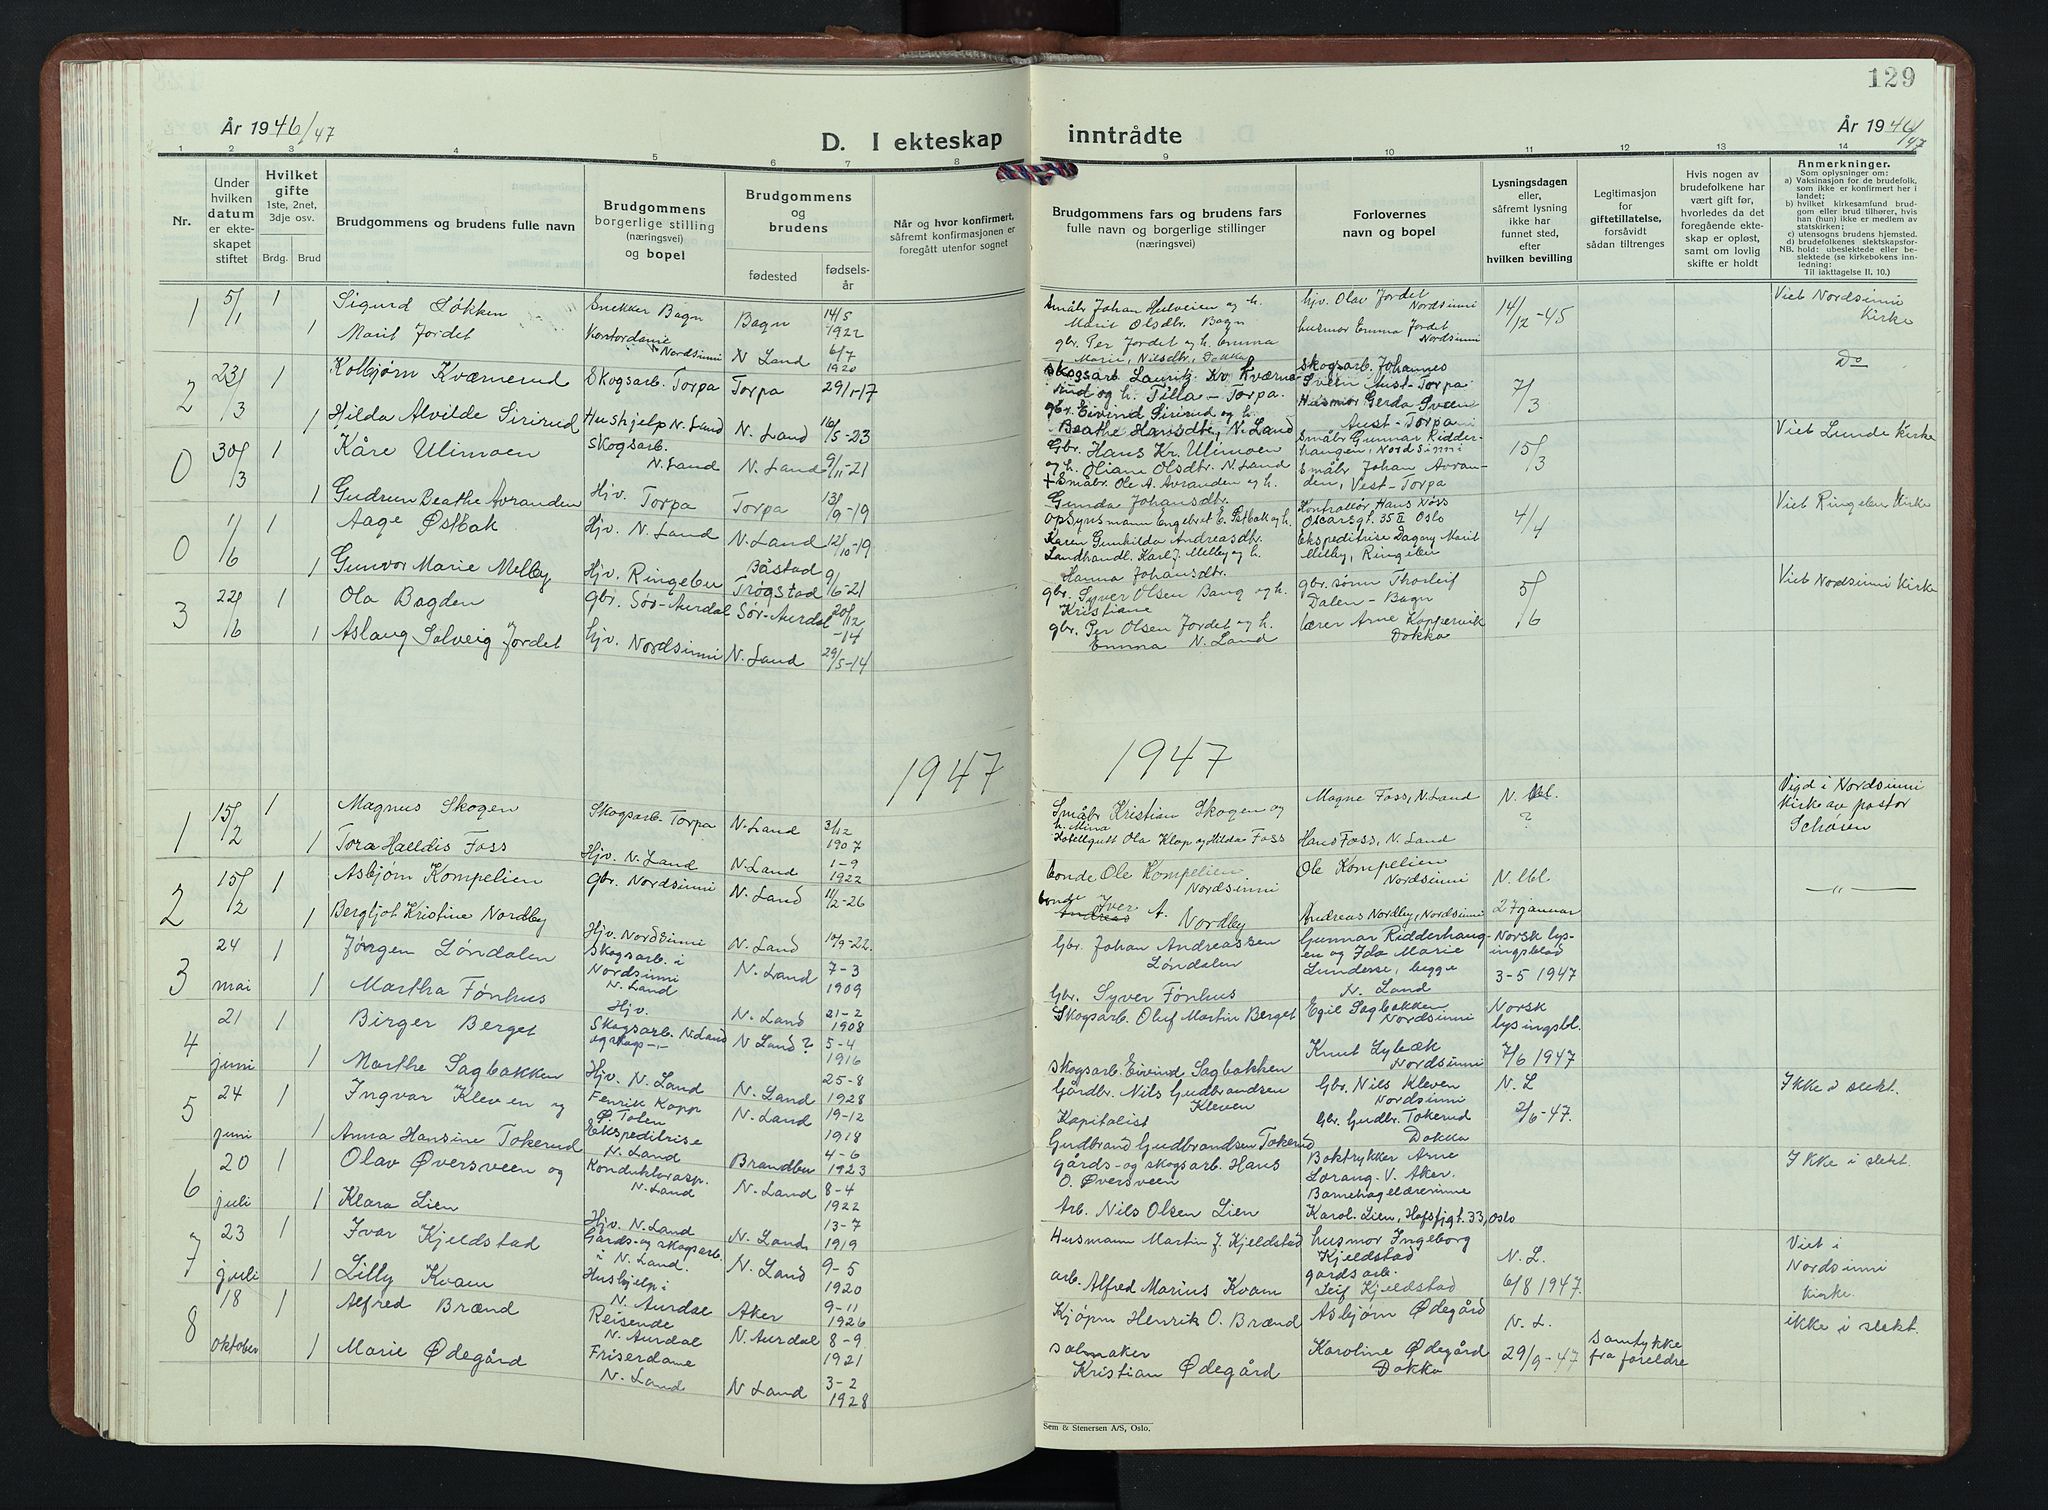 129
År 1946/47
D. I ekteskap inntrådte
År 1946/47
1 2 3 4 5 6 7 8 9 10 11 12 13 14
Nr.
Under hvilken datum er ekteskapet stiftet
Hvilket gifte 1ste, 2net, 3dje osv.
Brdg. Brud
Brudgommens og brudens fulle navn
Brudgommens borgerlige stilling (næringsvei) og bopel
Brudgommens og brudens
fødested
fødselsår
Når og hvor konfirmert, såfremt konfirmasjonen er foregått utenfor sognet
Brudgommens fars og brudens fars fulle navn og borgerlige stillinger (næringsvei)
Forlovernes navn og bopel
Lysningsdagen eller, såfremt lysning ikke har funnet sted, efter hvilken bevilling
Legitimasjon for giftetillatelse, forsåvidt sådan tiltrenges
Hvis nogen av brudefolkene har vært gift før, hvorledes da det foregående ekteskap er opløst, samt om lovlig skifte er holdt
Anmerkninger.
Som oplysninger om:
a) Vaksinasjon for de brudefolk, som ikke er konfirmert her i landet;
b) hvilket kirkesamfund brudgom eller brud tilhører, hvis han (hun) ikke er medlem av statskirken;
c) utensogns brudens hjemsted.
d) brudefolkenes slektskapsforhold: ubeslektede eller beslektede (se kirkebokens innledning:
NB.
Til iakttagelse II. 10.)
1 5/1 1 Sigurd Løkken Snekker Bagn Bagn 14/5 1922 Småbr Johan Helveien og h. Marit Olsdtr. Bagn hjv. Olav Jordet Nordsinni 14/12-45 Viet Nordsinni Kirke
1 Marit Jordet Kontordame Nordsinni N Land 6/7 1920 gbr. Per Jordet og h. Emma Marie, Nilsdtr, Dokka husmor Emma Jordet Nordsinni
2 23/3 1 Kolbjørn Kværnerud Skogsarb. Torpa Torpa 29/1-17 Skogsarb Lauritz Kr Kværnerud og h. Tilla - Torpa. Skogsarb. Johannes Sveen Aust-Torpa 7/3 Do
1 Hilda Alvilde Sirirud Hushjelp N. Land N. Land 16/5-23 gbr. Eivind Sirirud og h. Beathe Hansdtr, N. Land Husmor Gerda Sveen Aust-Torpa
0 30/3 1 Kåre Ulimoen Skogsarb. N. Land N. Land 9/11-21 Gbr. Hans Kr. Ulimoen og h. Oliane Olsdtr. N. Land Småbr Gunnar Ridderhangen, Nordsinni 15/3 Viet Lunde Kirke
1 Gudrun Beathe Avranden Hjv. Torpa Torpa 13/9-19 + Småbr. Ole A. Avranden og h. Gunda Johansdtr. Småbr Johan Avranden, Vest-Torpa
0 1/6 1 Aage Østbak Hjv. N. Land N. Land 12/10-19 Opsynsmann Engebret E. Østbak og h. Karen Gunhilda Andreasdtr. Kontrollør Hans Næss Oscarsgt. 35 II Oslo 4/4 Viet Ringebu Kirke
1 Gunvor Marie Melby Hjv. Ringebu Båstad Trøgstad 9/6-21 Landhandl. Karl J. Melby og h. Hanna Johansdtr. Ekspeditrise Dagny Marit Melby, Ringebu
3 22/6 1 Ola Bagden gbr. Sør-Aurdal Sør-Aurdal 20/12-14 gbr. Syver Olsen Bang og h. Kristiane gbr. sønn Thorleif Dalen - Bagn 5/6 Viet Nordsinni Kirke
1 Aslaug Solveig Jordet hjv. Nordsinni N. Land 29/5-14 gbr. Per Olsen Jordet og h. Emma N. Land lærer Arne Koppervik Dokka
1947 1947
1 15/2 1 Magnus Skogen Skogsarb. Torpa N. Land 3/12 1907 Småbr Kristian Skogen og h. Mina Magne Foss, N. Land N. lbl. ? Vigd i Nordsinni kirke av pastor Schøsen
1 Tora Halldis Foss Hjv. N. Land N. Land 1-9 1922 Hotellgutt Ola Klop og Hilda Foss Hans Foss, N. Land
2 15/2 1 Asbjørn Kompelien gbr. Nordsinni N. Land 11/2-26 bonde Ole Kompelien Nordsinni Ole Kompelien Nordsinni N. lbl. -"-
1 Bergljot Kristine Nordby Hjv. Nordsinni N. Land 10/9-22 bonde Iver Andreas A. Nordby Andreas Nordby, Nordsinni 27 januar
3 24 mai 1 Jørgen Løndalen Skogsarb. i Nordsinni N. Land N. Land 7-3 1909 Gbr. Johan Andreassen Løndalen Gunnar Ridderhangen og Ida Marie Lunderse, begge N. Land Norsk lysingsblad 3-5 1947
1 Martha Fønhus Hjv. N. Land 21-2 1908 Gbr. Syver Fønhus
4 21 juni 1 Birger Berget Skogsarb. N. Land og skogs-"- N Land? 5-4 1916 Skogsarb. Oluf Martin Berget Egil Sagbakken Nordsinni Norsk lysingsbl. 7/6 1947
1 Marthe Sagbakken Hjv. N. Land N. Land 25-8 1928 skogsarb. Eivind Sagbakken Knut Lybæk Nordsinni
5 24 juni 1 Ingvar Kleven og Fenrik Kapp Ø. Toten N. Land 19-12 1918 Gårdbr. Nils Gudbrandsen Kleven Gbr. Nils Kleven Nordsinni N. L 2/6-47. Ikke i slekt.
1 Anna Hansine Tokerud Ekspeditrise N. Land Brandbu 4-6 1923 Kapitalist Gudbrand Gudbrandsen Tokerud Gbr. Gudbr. Tokerud Dokka
6 20 juli 1 Olav Øversveen og Konduktørasp. N. Land N. Land 8-4 1922 Gårds- og skogsarb. Hans O. Øversveen Boktrykker Arne Lorang. V. Aker. Ikke i slekt.
1 Klara Lien Hjv. N. Land N. Land 13-7 1919 Arb. Nils Olsen Lien Barnehagelærerinne Karol. Lien, Hafsfjgt. 33, Oslo
7 23 juli 1 Ivar Kjeldstad Gårds- og skogsarb. i N. Land. N. Land 9-5 1920 Husmann Martin J. Kjeldstad husmor Ingeborg Kjeldstad N. L. 6/8 1947. Viet i Nordsinni kirke.
1 Lilly Kvam Hushjelp i N. Aurdal Aker 9-11 1926 arb. Alfred Marius Kvam gårdsarb. Leif Kjeldstad
8 18 oktober 1 Alfred Brænd Reisende N. Aurdal N. Aurdal 8-9 1921 Kjøpm Henrik O. Brænd Asbjørn Ødegård N. L. 29/9-47 samtykke fra foreldre ikke i slekt.
1 Marie Ødegård Friserdame N. Land N Land 3-2 1928 salmaker Kristian Ødegård Karoline Ødegård Dokka
Sem & Stenersen A/S, Oslo.